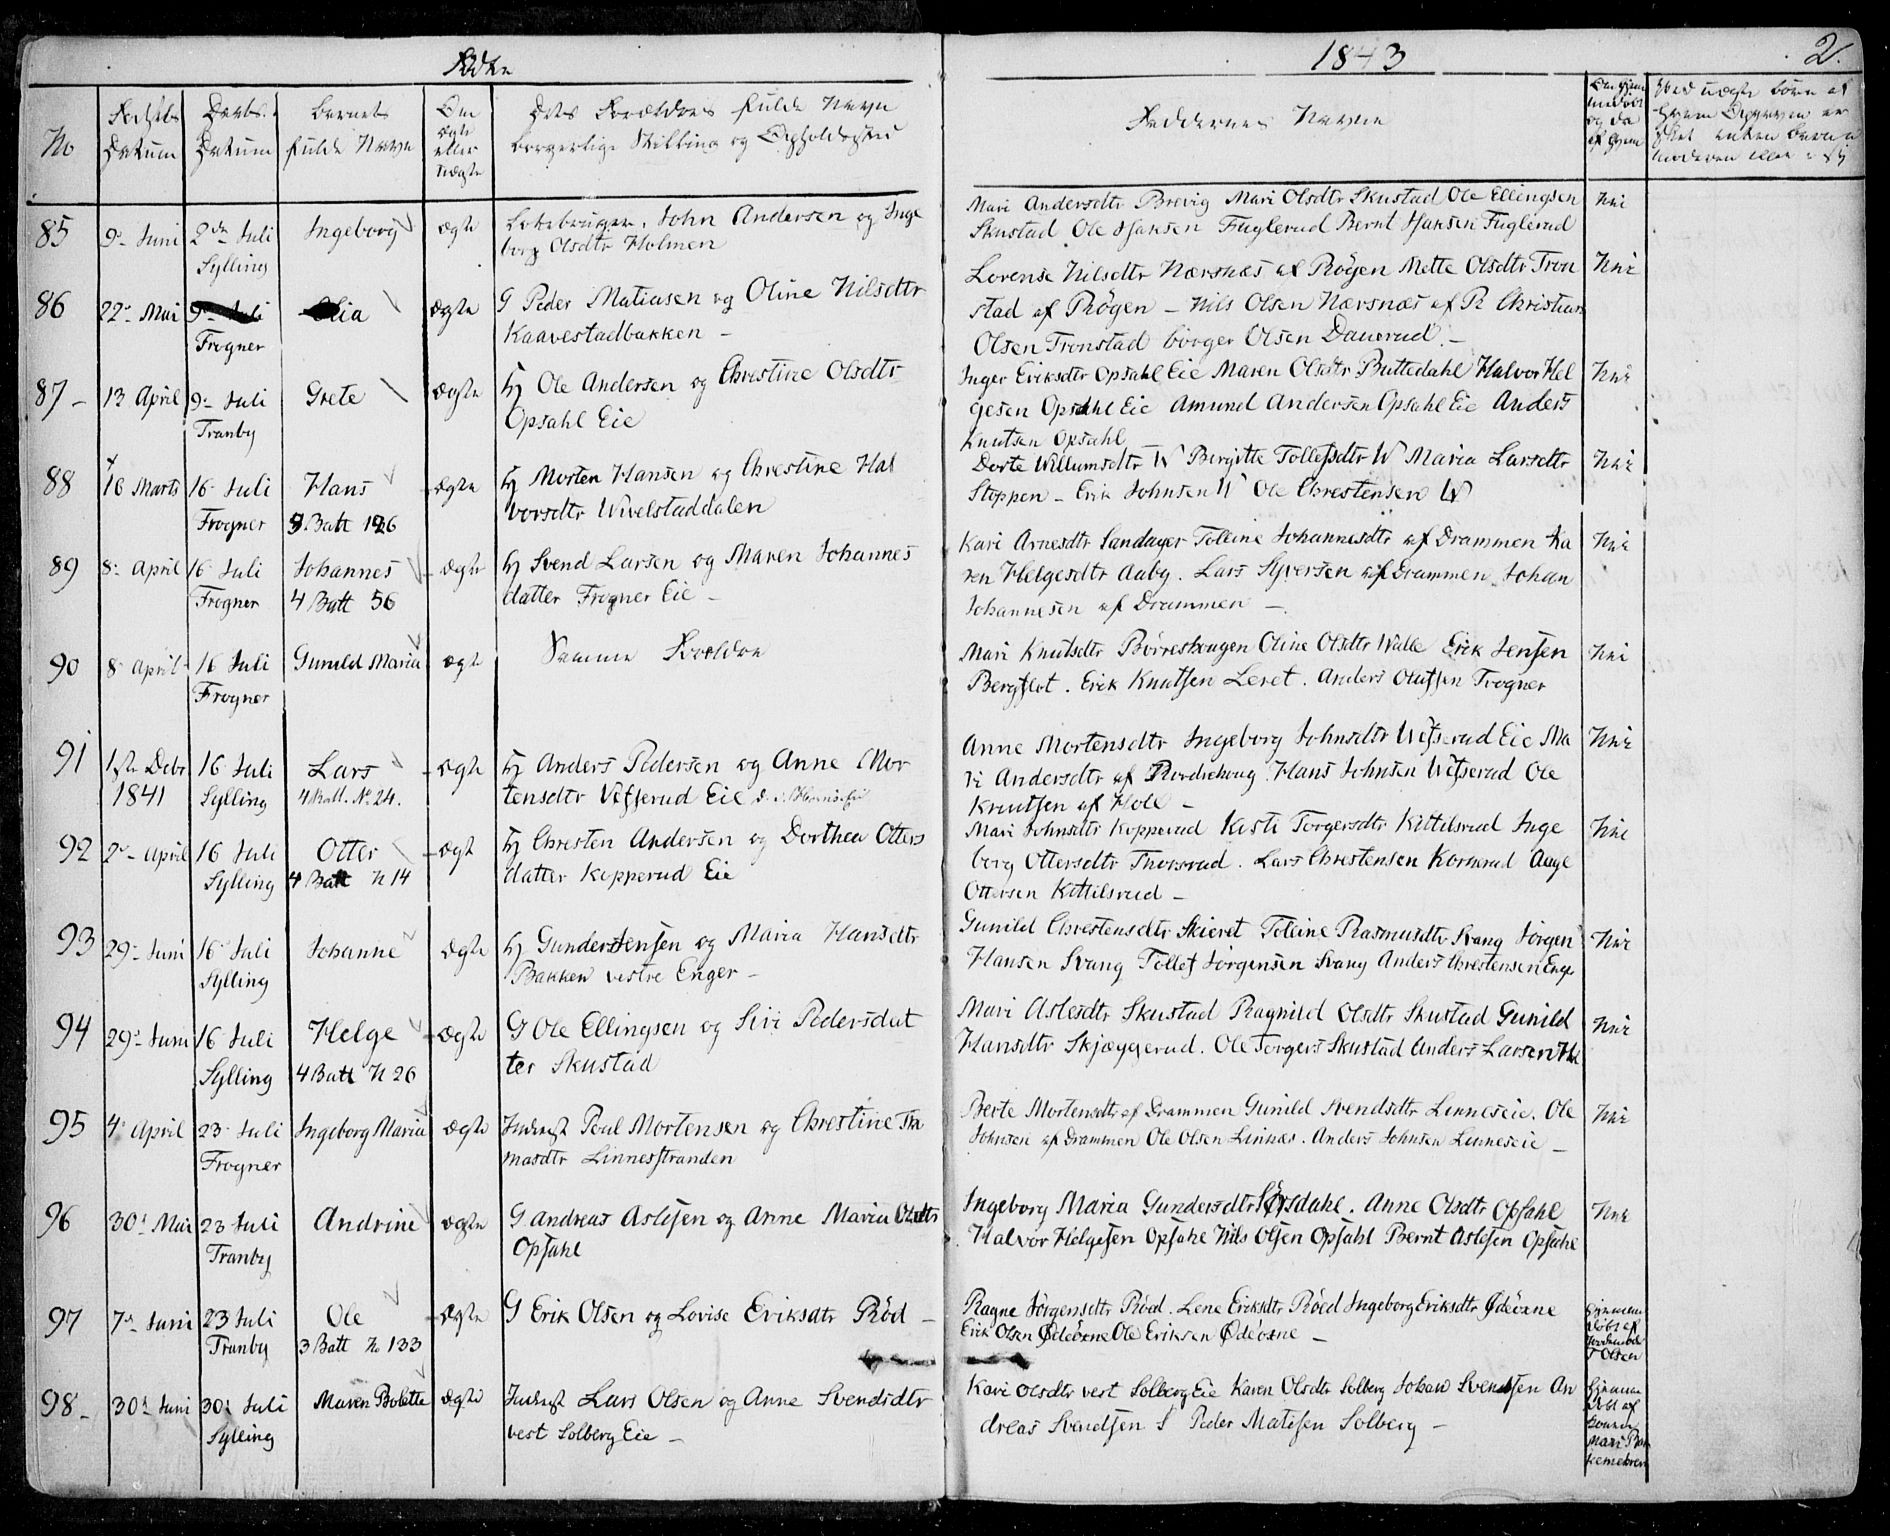 Fødte
1843
2.
No
Fødsels
Datum
Daabs
Datum
Barnets
fulde Navn
Om
ægte
eller
uægte
Dets Forældres fulde Navn
borgerlige Stilling og Opholdssted
Faddernes Navne
Om hjem
medøbt
og da
af hvem
Ved uægte børn af
hvem Opgaven er
skeet enten barne
moderen eller
85
9de Juni
2den Juli
Sylling
Ingeborg
ægte
John Andersen og Inge
borg Olsdtr Holmen
Mari Andersdtr Brevig Mari Olsdtr Skustad Ole Ellingsen
Skustad Ole Hansen Fuglerud Bernt Hansen Fuglerud
Nei
86
22de Mai
9de Juli
Frogner
Olia
ægte
G Peder Matiasen og Oline Nilsdtr
Kaavestadbakken –
Lorense Nilsdtr Nærsnæs af Røgen Mette Olsdtr Tron
stad af Røgen – Nils Olsen Nærsnæs af R Christian
Olsen Tronstad børger Olsen Dauerud –
Nei
87 –
13 April
9de Juli
Tranby
Grete
ægte
Hj Ole Andersen og Christine Olsdtr
Opsahl Eie
Inger Eriksdtr Opsahl Eie Maren Olsdtr Buttedahl Halvor Hel
gesen Opsahl Eie Amund Andersen Opsahl Eie Anders
Knutsen Opsahl
Nei
88
16 Marts
16 Juli
Frogner
Hans
3 Batt 126
ægte
Hj Morten Hansen og Christine Hal
vorsdtr Wivelstaddalen
Dorte Willumsdtr W Bergitte Tollefsdtr W Maria Larsdtr
Stoppen – Erik Johnsen W Ole Chrestensen W
Nei
89
8de April
16 Juli
Frogner
Johannes
4 Batt 56
ægte
Hj Svend Larsen og Maren Johannes
datter Frogner Eie –
Kari Arnesdtr Sandager Tolline Johannesdtr af Drammen Ka
ren Helgesdtr Aaby. Lars Syversen af Drammen Johan
Johannesen af Drammen –
Nei
90
8 April
16 Juli
Frogner
Gunild Maria
ægte
Samme Forældre
Mari Knutsdtr Børreshaugen Oline Olsdtr Walle Erik Jensen
Bergflot. Erik Knutsen Leret. Anders Olufsen Frogner
Nei
91
1ste Debr
1841
16 Juli
Sylling
Lars
4 Batt. No 24.
ægte
Hj Anders Pedersen og Anne Mor
tensdtr Vefserud Eie
Anne Mortensdtr Ingeborg Johnsdtr Wefserud Eie Ma
ri Andersdtr af Norderhoug Hans Johnsen Wefserud Ole
Knutsen af Hole –
Nei
92
2de April
16 Juli
Sylling
Otter
4 Batt N 14
ægte
Hj Chresten Andersen og Dorthea Otters
datter Kopperud Eie
Mari Johnsdtr Kopperud Kisti Torgersdtr Kittilsrud Inge
borg Ottersdtr Thorsrud. Lars Chrestensen Kornerud Aage
Ottersen Kittilsrud –
Nei
93
29de Juni
16 Juli
Sylling
Johanne
ægte
Hj Gunder Jensen og Maria Hansdtr
Bakken vestre Enger –
Gunild Chrestensdtr Skieret Tolline Rasmusdtr Svang Jørgen
Hansen Svang Tollef Jørgensen Svang Anders Chrestensen Enger
Nei
94
29de Juni
16 Juli
Sylling
Helge
4 Batt N 26
ægte
G Ole Ellingsen og Siri Pedersdat
ter Skustad
Mari Aslesdtr Skustad Ragnild Olsdtr Skustad Gunild
Hansdtr Skjæggerud. Ole Torgers Skustad Anders Larsen
Nei
95
4de April
23 Juli
Frogner
Ingeborg Maria
ægte
Inderst Poul Mortensen og Chrestine Tho
masdtr Linnesstranden
Berte Mortensdtr af Drammen Gunild Svendsdtr Linneseie. Ole
Johnsen af Drammen Ole Olsen Linnæs. Anders Johnsen Linneseie –
Nei
96
30de Mai
23 Juli
Tranby
Andrine
ægte
G Andreas Aslesen og Anne Maria Olsdtr
Opsahl
Ingeborg Maria Gundersdtr Sørsdahl. Anne Olsdtr Opsahl
Halvor Helgesen Opsahl Nils Olsen Opsahl Bernt Aslesen Opsahl
Nei
97
7de Juni
23 Juli
Tranby
Ole
3 Batt No 133
ægte
G Erik Olsen og Lovise Eriksdtr Rød –
Ragne Jørgensdtr Røed. Lene Eriksdtr Røed Ingeborg Eriksdtr Ødeørne
Erik Olsen Ødeørne Ole Eriksen Ødeørne –
Hjemme
døbt af
T Olsen
98 –
30de Juni
30te Juli
Sylling
Maren Bolette
ægte
Inderst Lars Olsen og Anne Svendsdtr
vest Solberg Eie –
Kari Olsdtr vest Solberg Eie Karen Olsdtr Solberg Johan Svendsen An
dreas Svendsen S Peder Matisen Solberg –
Hjemme
døbt af
Mari